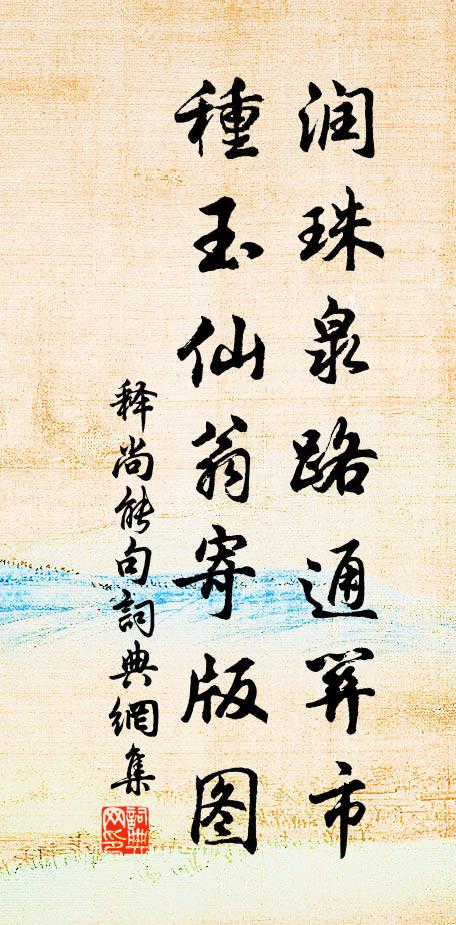 润珠泉路通市
種玉仙翁寄版图
释尚能句詞典網集
詞典
网印